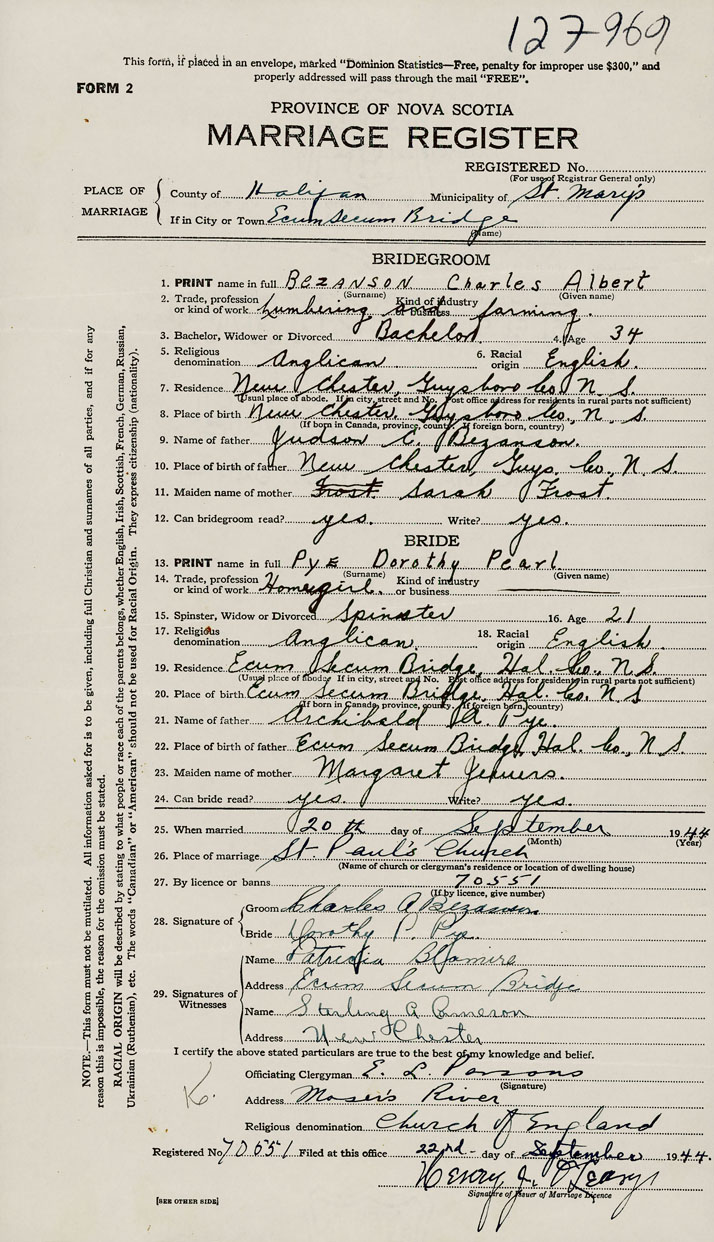 127969
This form, if placed in an envelope, marked "Dominion Statistics—Free, penalty for improper use $300," and
properly addressed will pass through the mail "FREE".
FORM 2
PROVINCE OF NOVA SCOTIA
MARRIAGE REGISTER
REGISTERED No.
(For use of Registrar General only)
PLACE OF MARRIAGE
County of Halifax Municipality of St. Mary's
If in City or Town Ecum Secum Bridge
(Name)
BRIDEGROOM
1. PRINT name in full BEZANSON Charles Albert
(Surname) (Given name)
2. Trade, profession or kind of work Lumbering and Kind of industry or business farming.
3. Bachelor, Widower or Divorced Bachelor 4. Age 34
5. Religious denomination Anglican 6. Racial origin English.
7. Residence New Chester, Guysboro Co., N. S.
(Usual place of abode. If in city, street and No. Post office address for residents in rural parts not sufficient)
8. Place of birth New Chester, Guysboro Co., N. S.
(If born in Canada, province, county. If foreign born, country)
9. Name of father Judson C. Bezanson.
10. Place of birth of father New Chester, Guys. Co., N. S.
11. Maiden name of mother Frost Sarah Frost.
12. Can bridegroom read? yes. Write? yes.
BRIDE
13. PRINT name in full PYE Dorothy Pearl
(Surname) (Given name)
14. Trade, profession or kind of work Homegirl. Kind of industry or business
15. Spinster, Widow or Divorced Spinster 16. Age 21
17. Religious denomination Anglican. 18. Racial origin English.
19. Residence Ecum Secum Bridge, Hal. Co., N. S.
(Usual place of abode. If in city, street and No. Post office address for residents in rural parts not sufficient)
20. Place of birth Ecum Secum Bridge, Hal. Co. N S
(If born in Canada, province, county. If foreign born, country)
21. Name of father Archibald A. Pye.
22. Place of birth of father Ecum Secum Bridge, Hal. Co., N S.
23. Maiden name of mother Margaret Jewers.
24. Can bride read? yes. Write? yes.
25. When married 20 th day of September 1944
(Month) (Year)
26. Place of marriage St. Paul's Church
(Name of church or clergyman's residence or location of dwelling house)
27. By licence or banns 70551
(If by licence, give number)
28. Signature of
Groom Charles A Bezanson
Bride Dorothy P. Pye.
29. Signatures of Witnesses
Name Patricia
Address Ecum Secum Bridge
Name Sterling G Cameron
Address New Chester
I certify the above stated particulars are true to the best of my knowledge and belief.
Officiating Clergyman E. L. Parsons
(Signature)
K.
Address Moser's River
Religious denomination Church of England
Registered No 70551 Filed at this office 22nd day of September 1944.
Henry J. O'Leary
Signature of Issuer of Marriage Licence
[SEE OTHER SIDE]
NOTE.—This form must not be mutilated. All information asked for is to be given, including full Christian and surnames of all parties, and if for any
reason this is impossible, the reason for the omission must be stated.
RACIAL ORIGIN will be described by stating to what people or race each of the parents belongs, whether English, Irish, Scottish, French, German, Russian,
Ukrainian (Ruthenian), etc. The words "Canadian" or "American" should not be used for Racial Origin. They express citizenship (nationality).